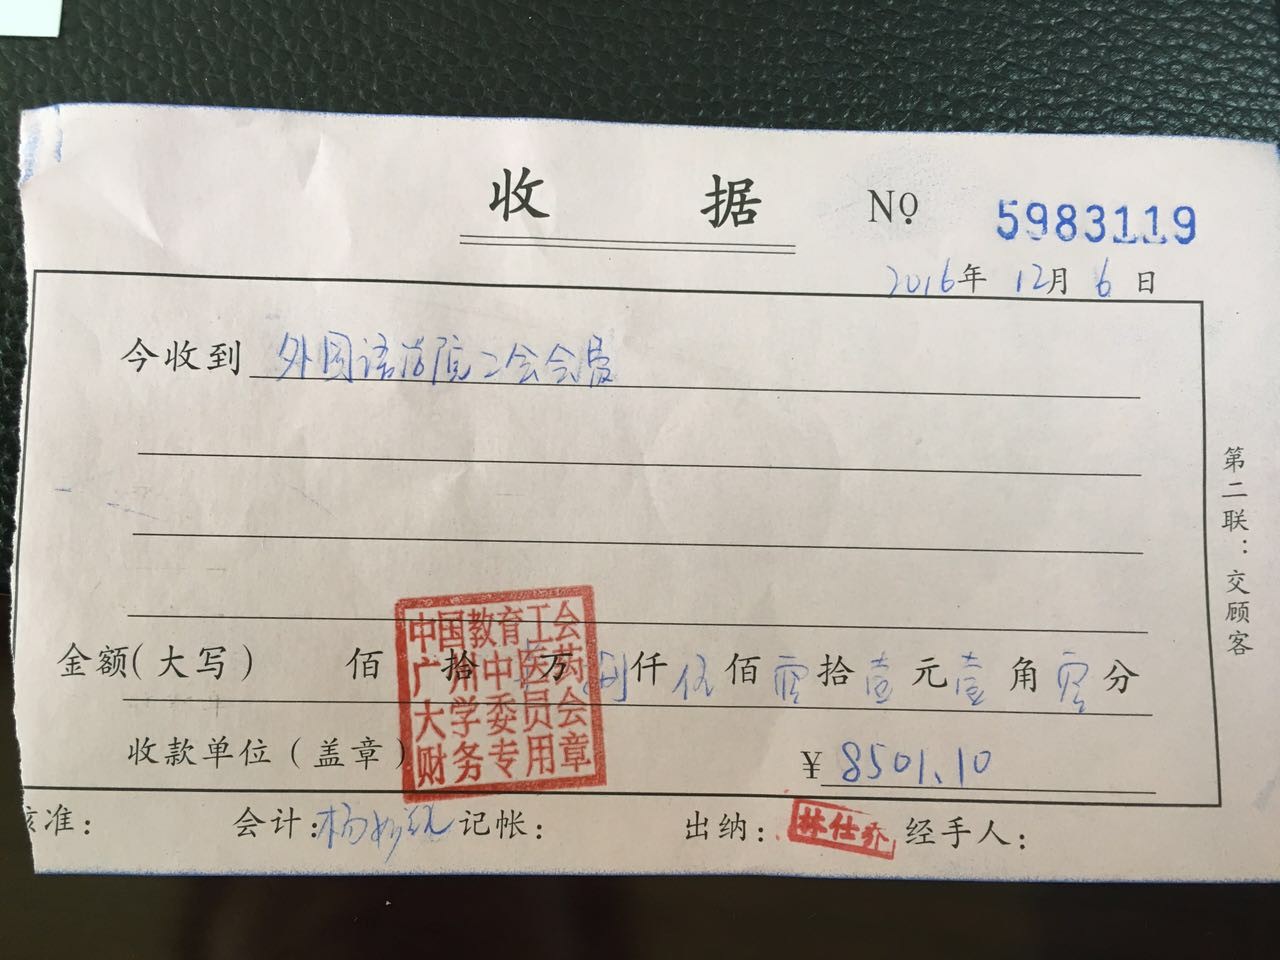 收 据 № 5983119
2016年 12月 6 日
今收到 外国语学院工会会费
金额(大写) 佰 拾 万 捌仟伍佰零拾壹元壹角零分
中国教育工会
广州中医药
大学委员会
财务专用章
收款单位(盖章) ¥ 8501.10
核准: 会计: 记帐: 出纳: 林仕乔 经手人:
第二联:交顾客